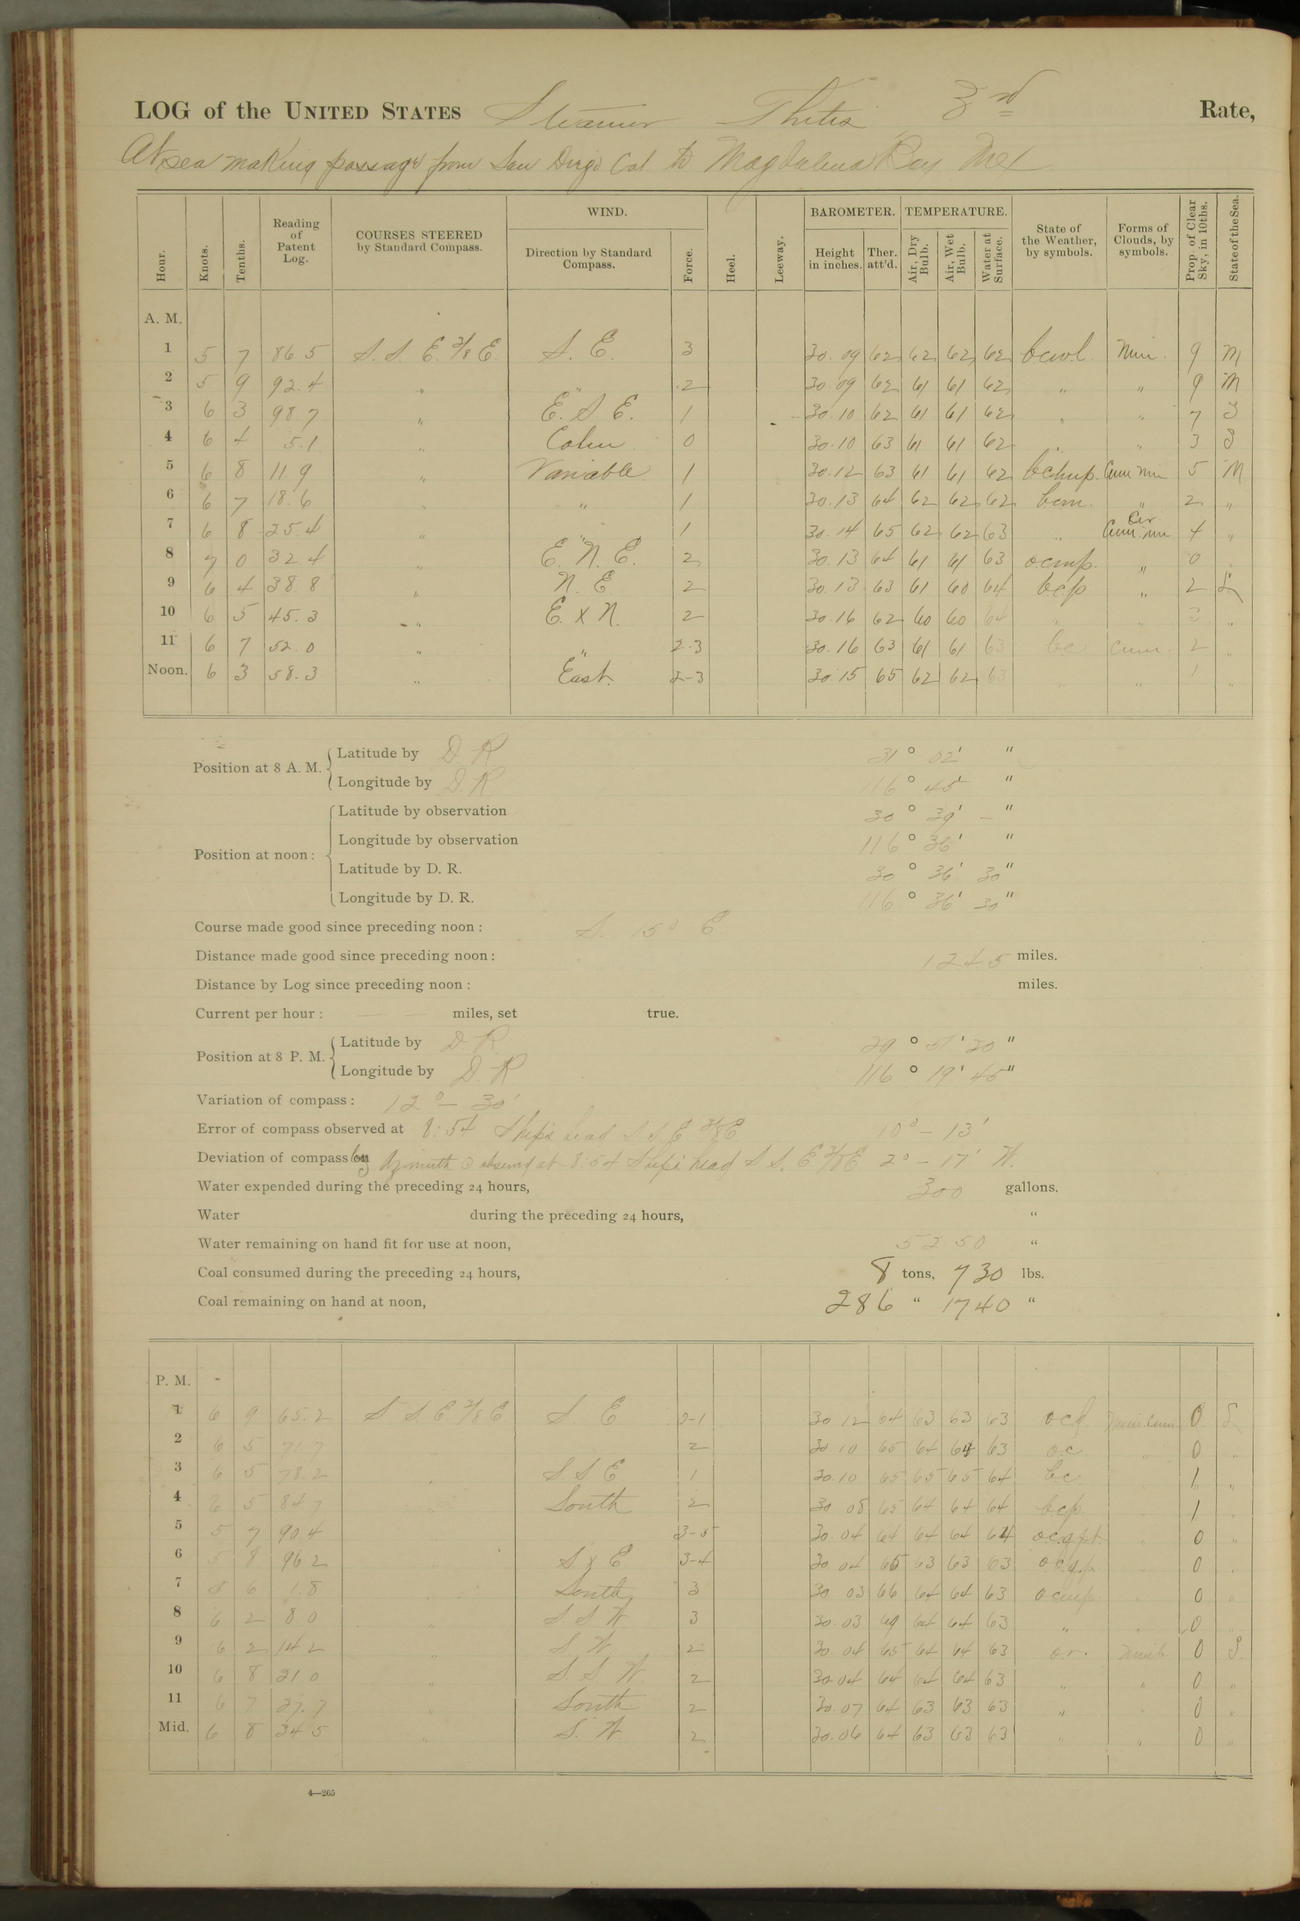 LOG of the UNITED STATES Steamer Thetis 3rd Rate,
At sea making passage from San Diego Cal to Magdalena Bay Mex
Hour. Knots. Tenths. Reading of Patent Log. COURSES STEERED by Standard Compass. WIND. Direction by Standard Compass. Force. Heel. Leeway. BAROMETER. Height in inches. Ther. att'd. TEMPERATURE. Air, Dry Bulb. Air, Wet Bulb. Water at Surface. State of the Weather, by symbols. Forms of Clouds, by symbols. Prop. of Clear Sky, in 10ths. State of the Sea.
A. M.
1 5 7 86 5 S. S. E. 3/8 E. S. E. 3 30. 09 62 62 62 62 Nim. 9 M
2 5 9 92. 4 " " 2 30 09 62 61 61 62 " " 9 M
3 6 3 98. 7 " E. S E. 1 30. 10 62 61 61 62 " " 7 S
4 6 4 5.1 " Calm 0 30. 10 63 61 61 62 " " 3 S
5 6 8 11 9 " Variable 1 30.12 63 61 61 62 Cum Nim 5 M
6 6 7 18. 6 " " 1 30. 13 64 62 62 62 bcm. " 2 "
7 6 8 25 4 " " 1 30. 14 65 62 62 63 " Cir Cum nim 4 "
8 7 0 32 4 " E. N. E. 2 30. 13 64 61 61 63 ocmp. " 0
9 6 4 38 8 " N. E 2 30. 13 63 61 60 64 bcp " 2 S
10 6 5 45. 3 " E. X N. 2 30. 16 62 60 60 64 " " 3 "
11 6 7 52. 0 " " 2-3 30. 16 63 61 61 63 bc Cum. 2 "
Noon. 6 3 58. 3 " East. 2-3 30 15 65 62 62 63 " " 1 "
Position at 8 A. M. Latitude by D R 31° 02' "
Longitude by D. R 116° 45' "
Position at noon: Latitude by observation 30° 39' — "
Longitude by observation 116° 36' "
Latitude by D. R. 30° 36' 30"
Longitude by D. R. 116° 36' 30"
Course made good since preceding noon: S. 15° E
Distance made good since preceding noon: 124 5 miles.
Distance by Log since preceding noon: miles.
Current per hour: — — miles, set true.
Position at 8 P. M. Latitude by D. R. 29° 51' 30"
Longitude by D. R 116° 19' 45"
Variation of compass: 12° — 30'
Error of compass observed at 8:54 Ship's head S S. E 3/8 E 10° — 13'
Deviation of compass by Azimuth observed at 8:54 Ship's head S S. E 3/8 E 2° — 17' W.
Water expended during the preceding 24 hours, 300 gallons.
Water during the preceding 24 hours, "
Water remaining on hand fit for use at noon, 5250 "
Coal consumed during the preceding 24 hours, 8 tons, 730 lbs.
Coal remaining on hand at noon, 286 " 1740 "
P. M.
1 6 9 65. 2 S S E 3/8 E S E 0-1 30 12 64 63 63 63 0 S
2 6 5 71. 7 2 30 10 65 64 64 63 o.c. 0 "
3 6 5 78. 2 " S S E 1 30.10 65 65 65 64 bc 1 "
4 6 5 84 7 South 2 30 08 65 64 64 64 bcp. 1 "
5 5 7 90 4 3-5 30. 04 64 64 64 64 0 "
6 5 8 96 2 S x E 3-4 30 04 65 63 63 63 o c.q.p. 0 "
7 5 6 1. 8 South 3 30 03 66 64 64 63 0 "
8 6 2 8 0 S S W. 3 30. 03 69 64 64 63 " 0 "
9 6 2 14 2 " S W 2 30 04 65 64 64 63 o.r. Nimb 0 S
10 6 8 21 0 " S S W. 2 30 04 64 64 64 63 " " 0 "
11 6 7 27. 7 South 2 30. 07 64 63 63 63 " 0 "
Mid. 6 8 34 5 " S. W 2 30. 06 64 63 63 63 " " 0 "
4—265